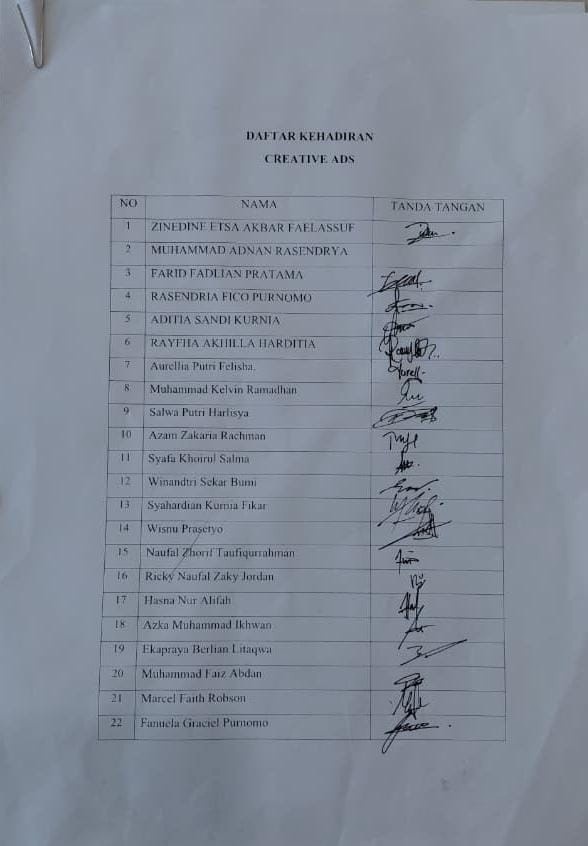 DAFTAR KEHADIRAN
CREATIVE ADS
NO NAMA TANDA TANGAN
1 ZINEDINE ETSA AKBAR FAELASSUF
2 MUHAMMAD ADNAN RASENDRYA
3 FARID FADLIAN PRATAMA
4 RASENDRIA FICO PURNOMO
5 ADITIA SANDI KURNIA
6 RAYFHA AKHILLA HARDITIA
7 Aurellia Putri Felisha.
8 Muhammad Kelvin Ramadhan
9 Salwa Putri Harlisya
10 Azam Zakaria Rachman
11 Syafa Khoirul Salma
12 Winandtri Sekar Bumi
13 Syahardian Kurnia Fikar
14 Wisnu Prasetyo
15 Naufal Zhorif Taufiqurrahman
16 Ricky Naufal Zaky Jordan
17 Hasna Nur Alifah
18 Azka Muhammad Ikhwan
19 Ekapraya Berlian Litaqwa
20 Muhammad Faiz Abdan
21 Marcel Faith Robson
22 Fanuela Graciel Purnomo